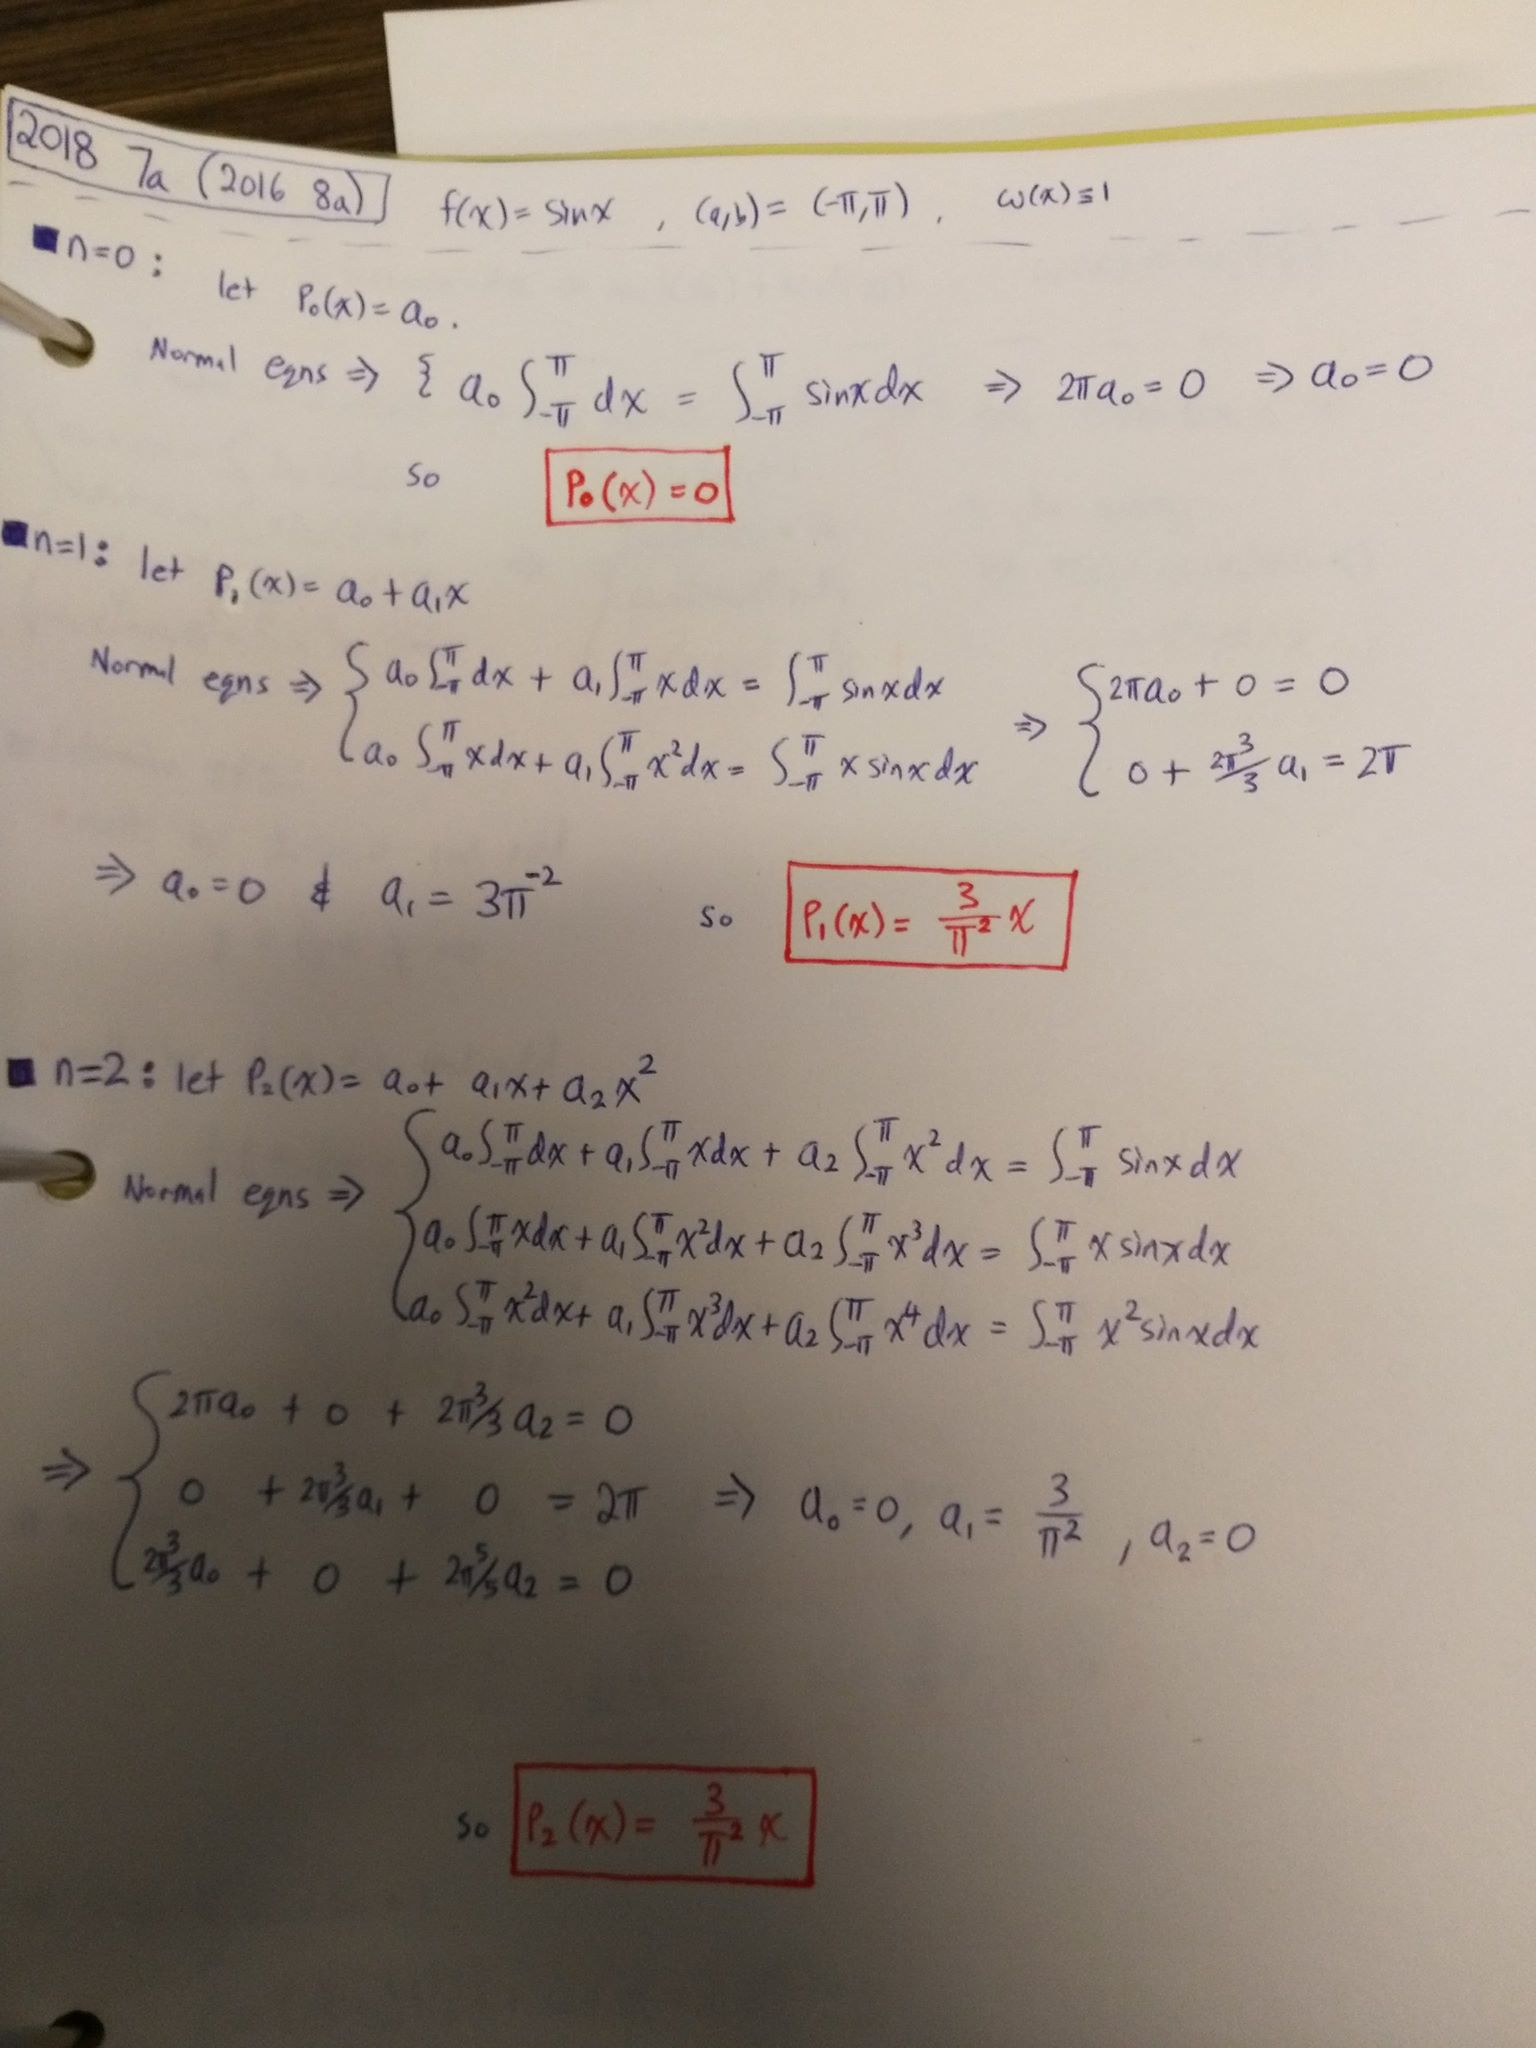 2018 7a (2016 8a) f(x) = sinx , (a,b) = (-π,π) , ω(x)≡1
■ n=0 : let P₀(x) = a₀ .
Normal eqns ⇒ { a₀ ∫_{-π}^{π} dx = ∫_{-π}^{π} sinx dx ⇒ 2πa₀ = 0 ⇒ a₀ = 0
so P₀(x) = 0
■ n=1 : let P₁(x) = a₀ + a₁x
Normal eqns ⇒ { a₀ ∫_{-π}^{π} dx + a₁ ∫_{-π}^{π} x dx = ∫_{-π}^{π} sinx dx ⇒ { 2πa₀ + 0 = 0
a₀ ∫_{-π}^{π} x dx + a₁ ∫_{-π}^{π} x² dx = ∫_{-π}^{π} x sinx dx 0 + 2π³/3 a₁ = 2π
⇒ a₀ = 0 & a₁ = 3π⁻² so P₁(x) = 3/π² x
■ n=2 : let P₂(x) = a₀ + a₁x + a₂x²
Normal eqns ⇒ { a₀ ∫_{-π}^{π} dx + a₁ ∫_{-π}^{π} x dx + a₂ ∫_{-π}^{π} x² dx = ∫_{-π}^{π} sinx dx
a₀ ∫_{-π}^{π} x dx + a₁ ∫_{-π}^{π} x² dx + a₂ ∫_{-π}^{π} x³ dx = ∫_{-π}^{π} x sinx dx
a₀ ∫_{-π}^{π} x² dx + a₁ ∫_{-π}^{π} x³ dx + a₂ ∫_{-π}^{π} x⁴ dx = ∫_{-π}^{π} x² sinx dx
⇒ { 2πa₀ + 0 + 2π³/3 a₂ = 0
0 + 2π³/3 a₁ + 0 = 2π ⇒ a₀ = 0, a₁ = 3/π² , a₂ = 0
2π³/3 a₀ + 0 + 2π⁵/5 a₂ = 0
so P₂(x) = 3/π² x